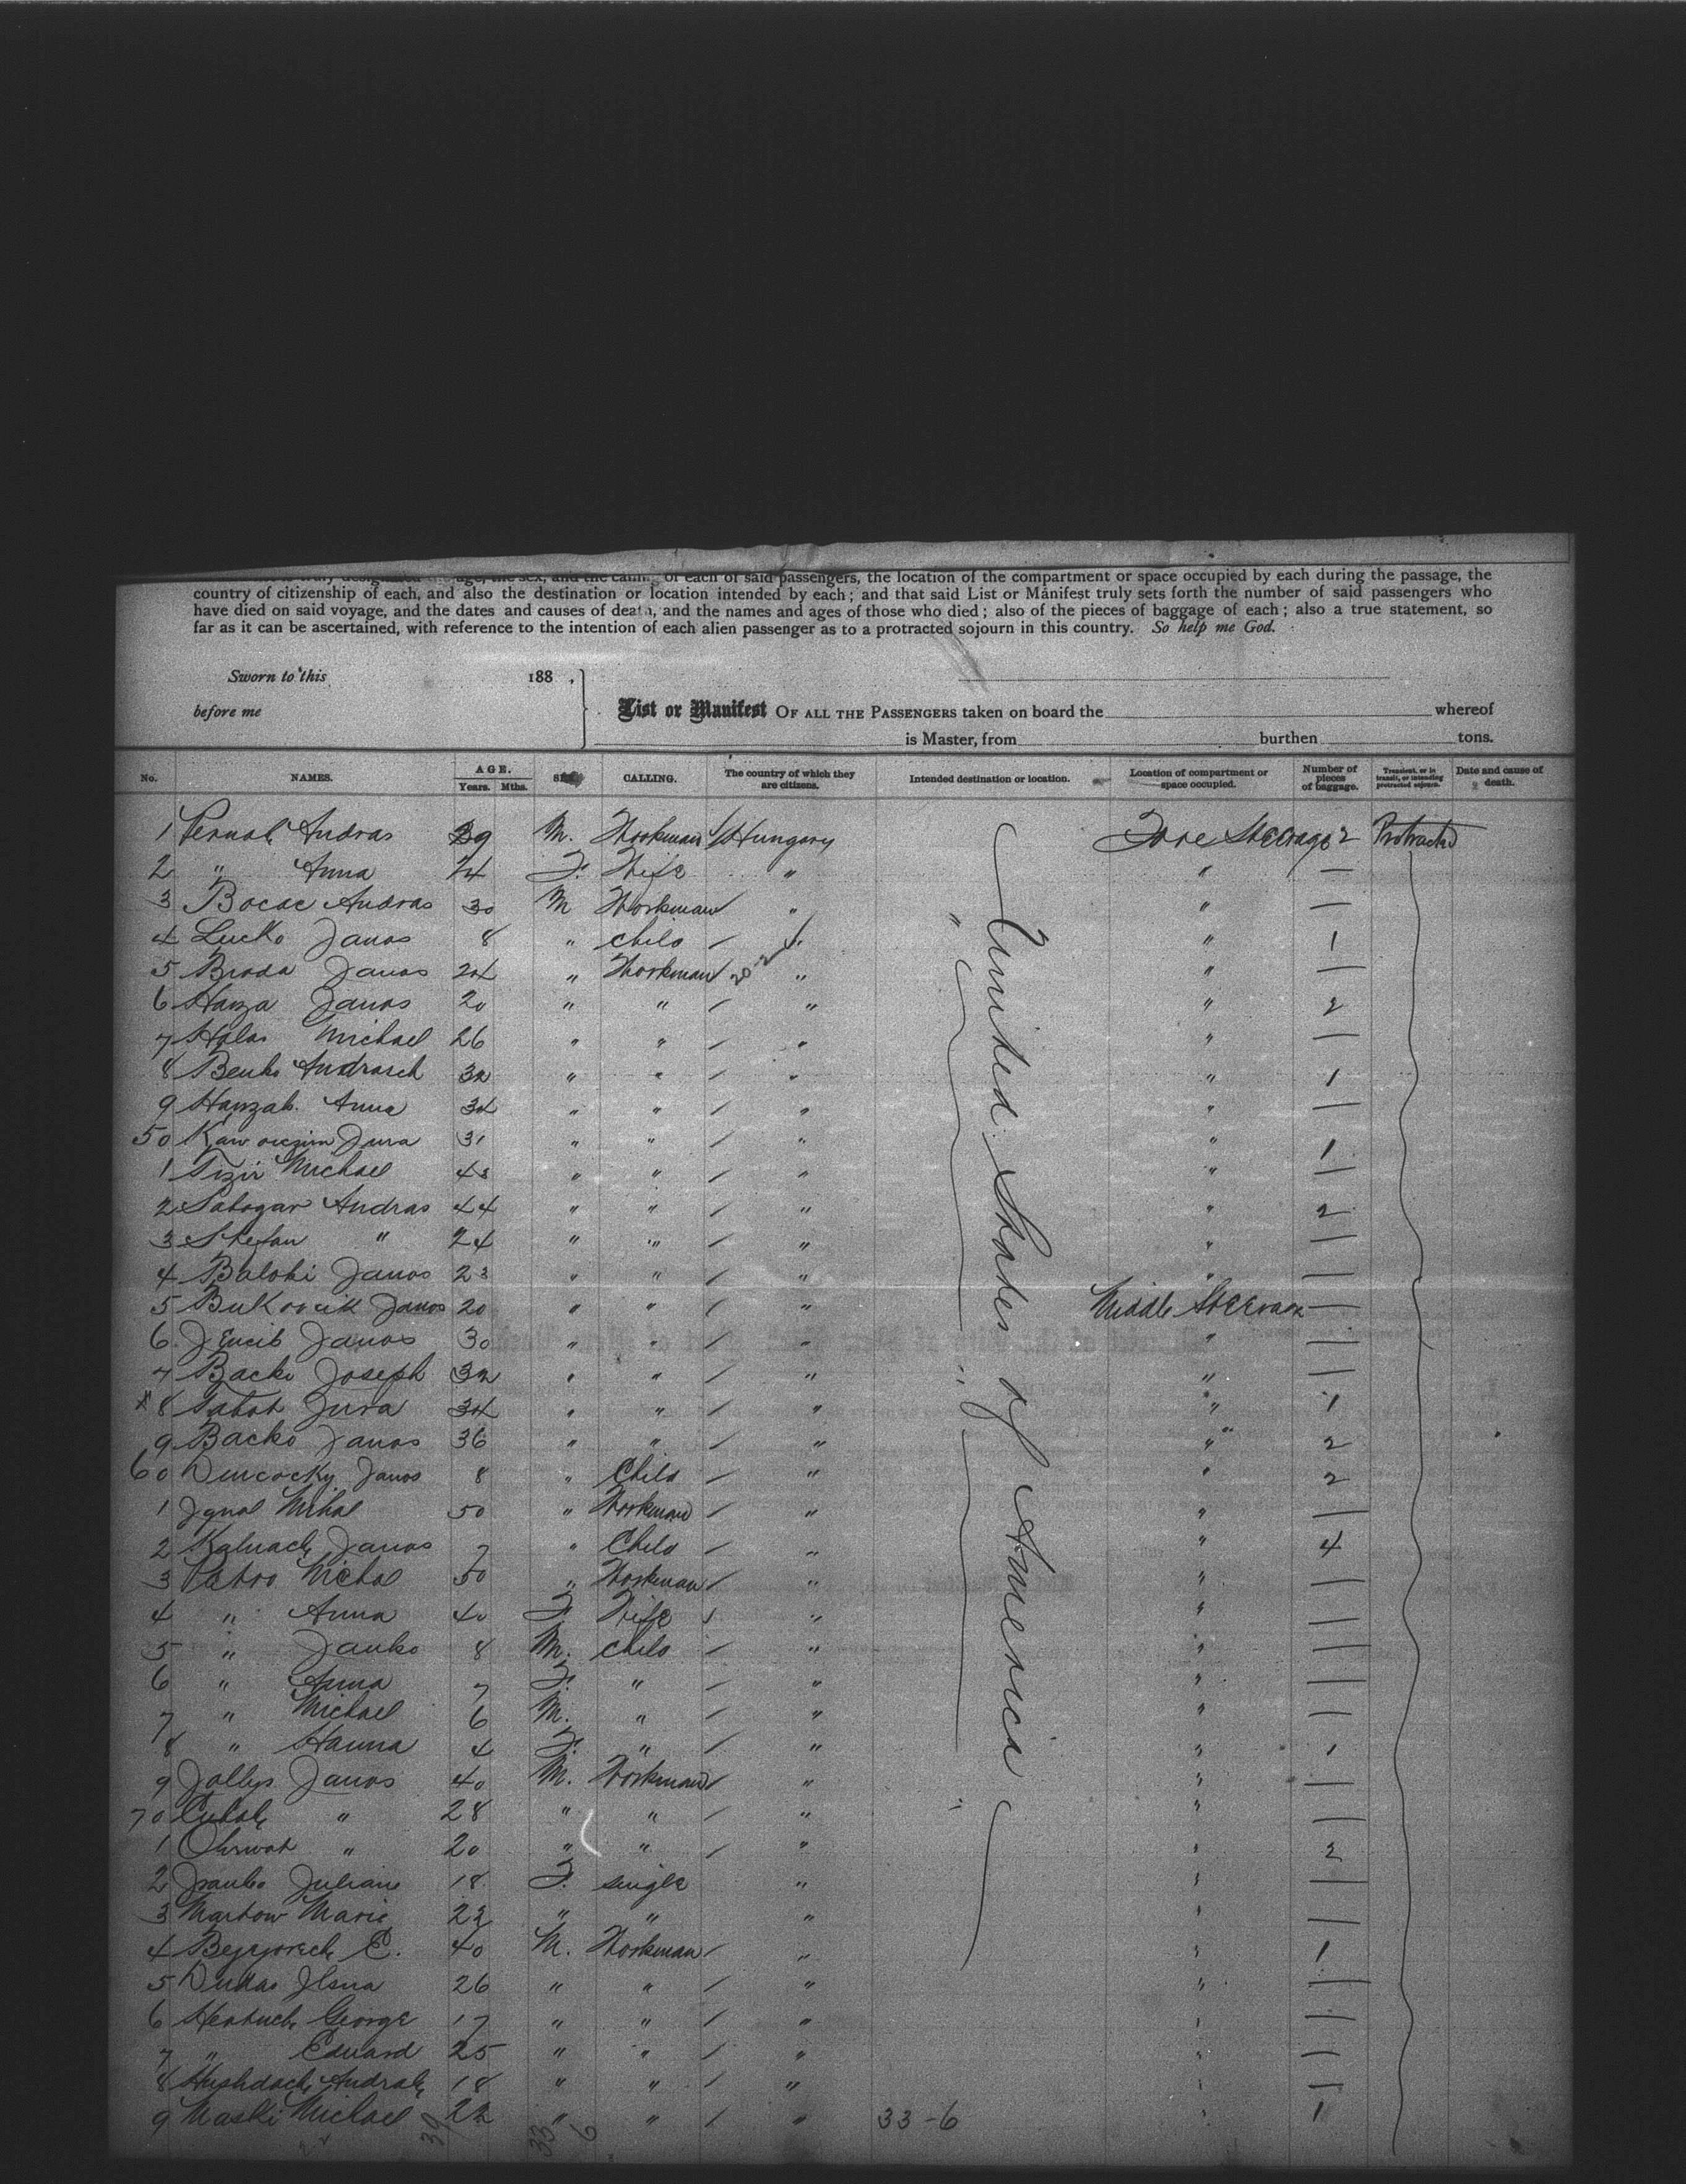 age, the sex, and the of each of said passengers, the location of the compartment or space occupied by each during the passage, the
country of citizenship of each, and also the destination or location intended by each; and that said List or Manifest truly sets forth the number of said passengers who
have died on said voyage, and the dates and causes of death, and the names and ages of those who died; also of the pieces of baggage of each; also a true statement, so
far as it can be ascertained, with reference to the intention of each alien passenger as to a protracted sojourn in this country. So help me God.
Sworn to this 188 ,
before me
List or Manifest OF ALL THE PASSENGERS taken on board the whereof
is Master, from burthen tons.
No. NAMES. AGE. Years. Mths. SEX. CALLING. The country of which they are citizens. Intended destination or location. Location of compartment or space occupied. Number of pieces of baggage. Transient, or in transit, or intending protracted sojourn. Date and cause of death.
United States of America
1 Andras 39 M. Workman Hungary Fore Steerage 2 Protracted
2 " Anna 24 F. Wife " " —
3 Bocac Andras 30 M Workman " " —
4 Lucko Janos 8 " child " " 1
5 Broda Janos 24 " Workman " " —
6 Hanza Janos 20 " " " " 2
7 Holas Michael 26 " " " " —
8 Benko Andrasch 32 " " " " 1
9 Hanzab. Anna 34 " " " " —
50 Jura 31 " " " " 1
1 Michael 48 " " " " —
2 Andras 44 " " " " 2
3 Stefan " 24 " " " " —
4 Baloki Janos 23 " " " " —
5 Janos 20 " " " Middle Steerage —
6 Janos 30 " " " " —
7 Backo Joseph 32 " " " " —
8 Jura 34 " " " " 1
9 Backo Janos 36 " " " " 2
60 Janos 8 " Child " " 2
1 Mihal 50 " Workman " " —
2 Janos 7 " Child " " 4
3 Michal 50 " Workman " " —
4 " Anna 40 F. Wife " " —
5 " Janko 8 M. child " " —
6 " Anna 7 F. " " " —
7 " Michael 6 M. " " " —
8 " Hanna 4 F. " " " 1
9 Janos 40 M. Workman " " —
70 " 28 " " " " —
1 " 20 " " " " 2
2 18 F. single " " —
3 Marie 22 " " " " —
4 C. 40 M. Workman " " 1
5 Dudas 26 " " " " —
6 George 17 " " " " —
7 " Eduard 25 " " " " —
8 18 " " " " —
9 Maski Michael 22 " " " 33-6 " 1
39 33 6